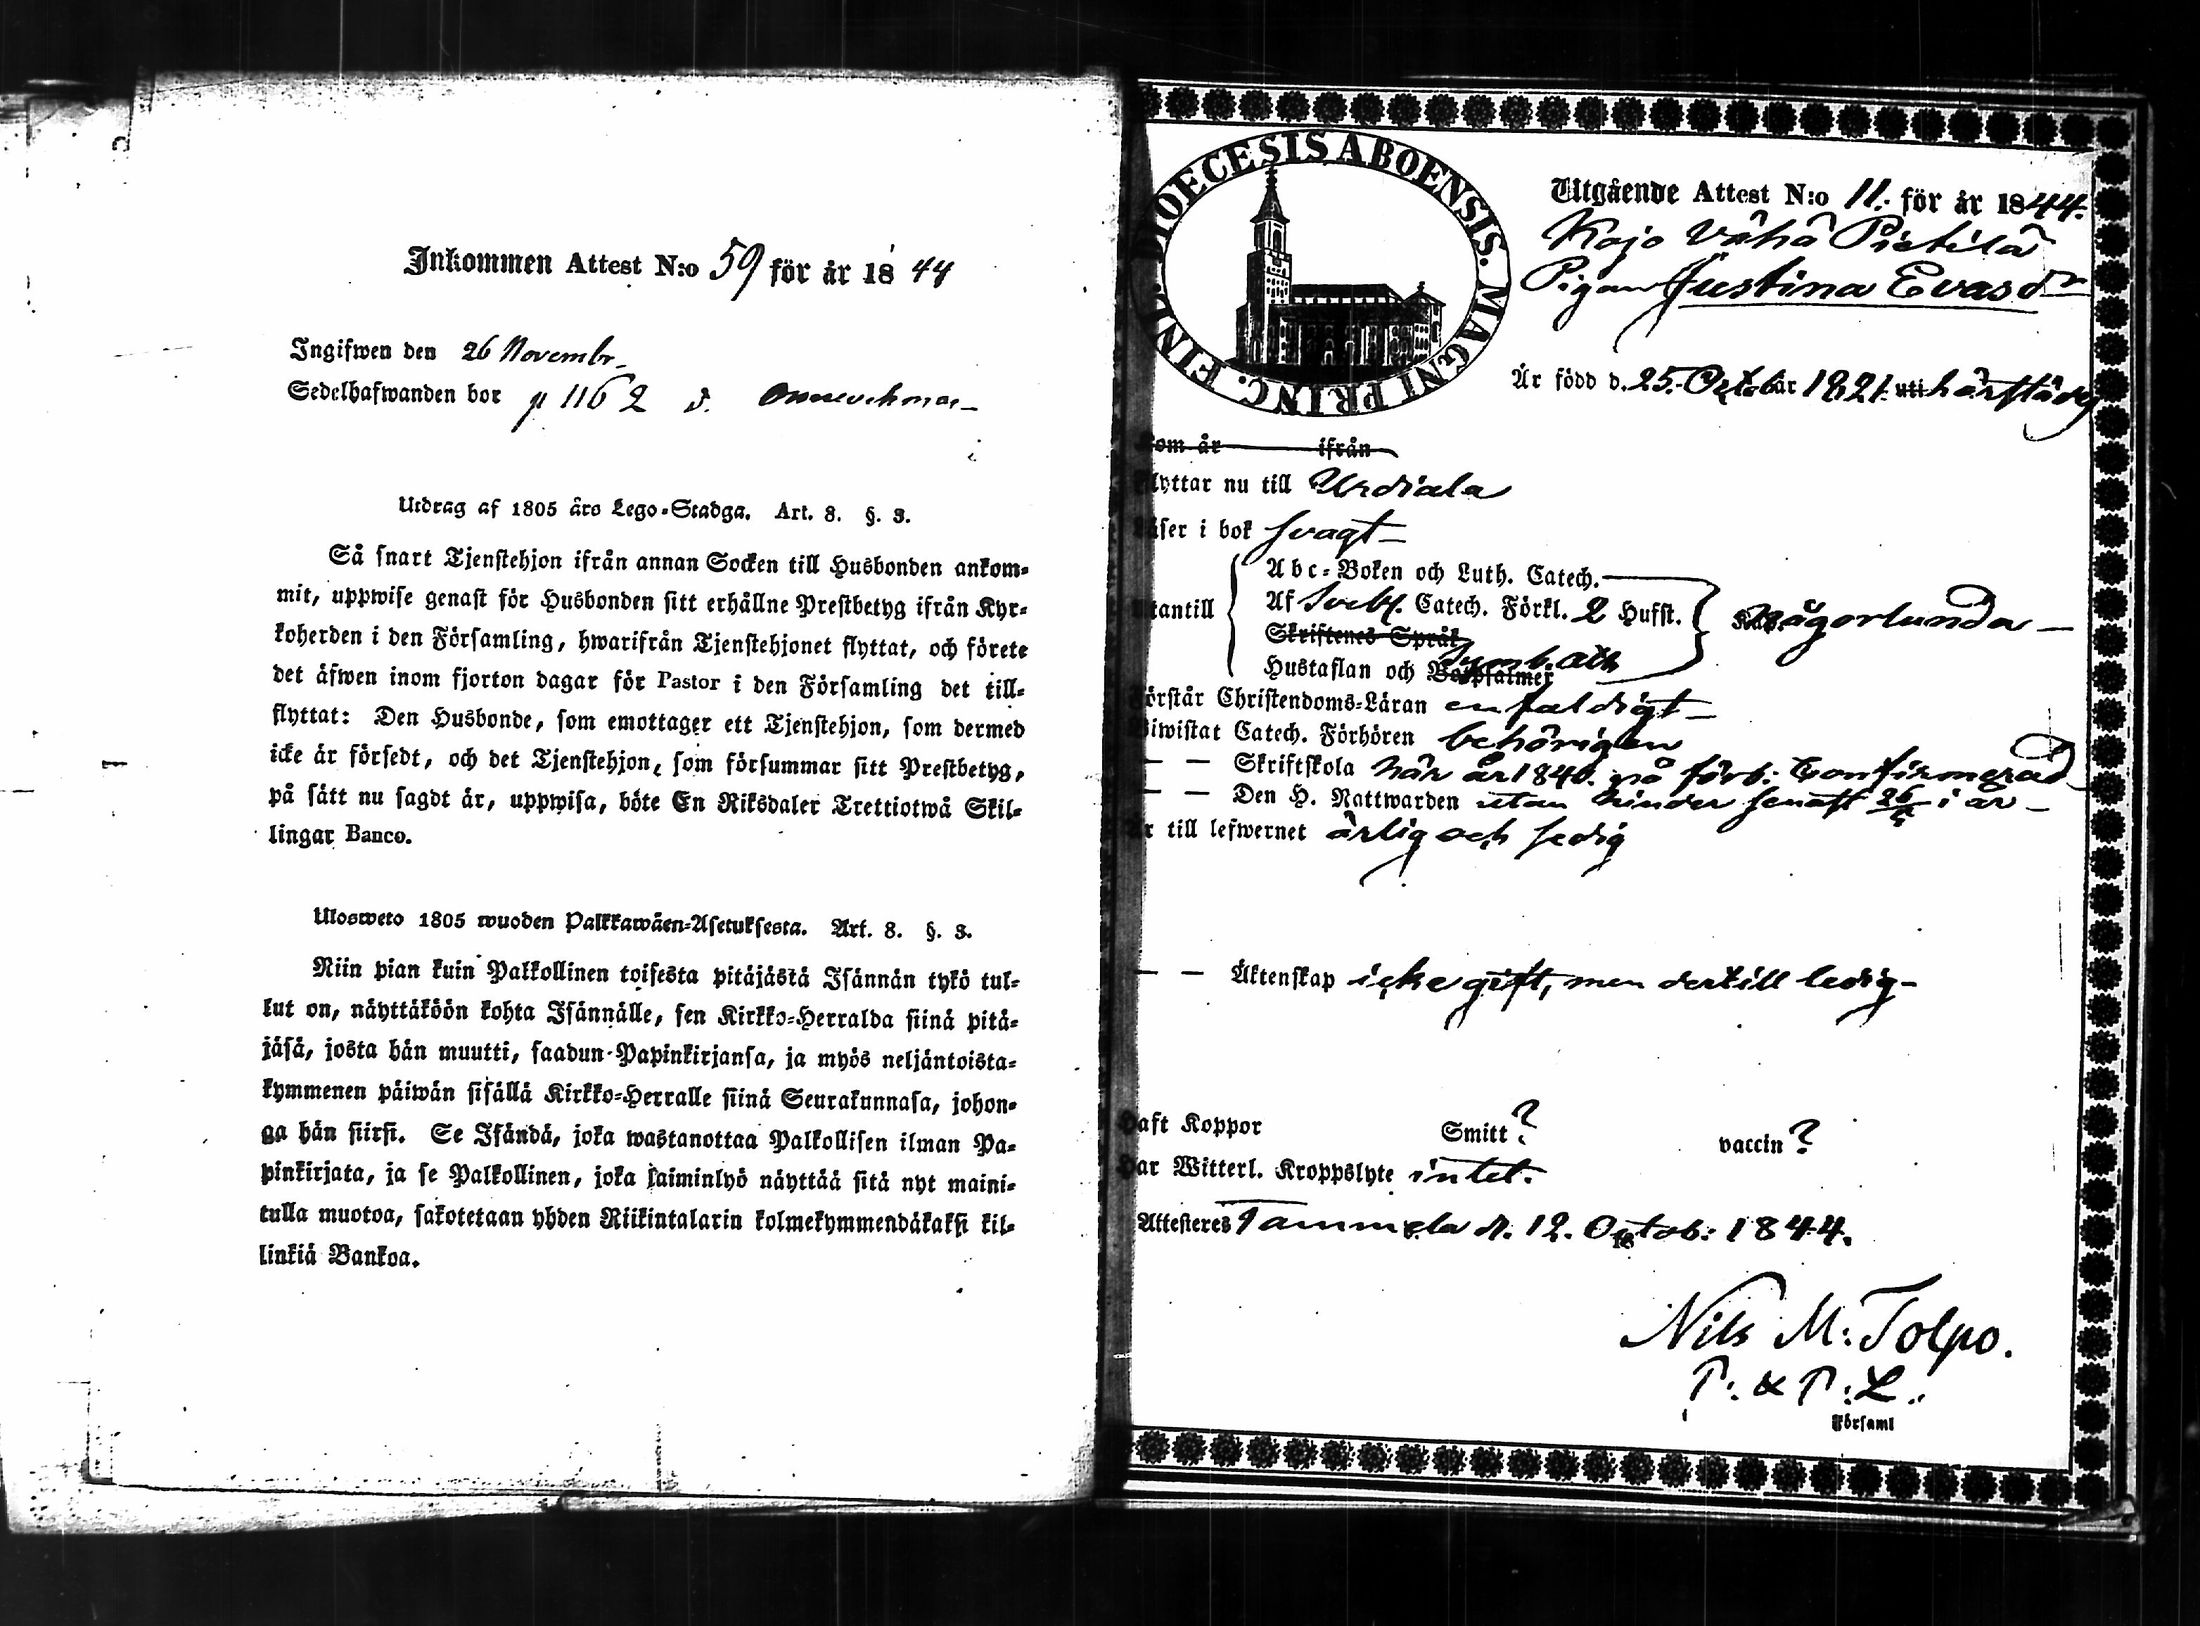 Inkommen Attest N:o 59 för år 18 44
Ingifwen den 26 Novembr
Sedelhafwanden bor p 1162
Utdrag af 1805 års Lego-Stadga. Art. 8. §. 3.
Så snart Tjenstehjon ifrån annan Socken till Husbonden ankom-
mit, uppwise genast för Husbonden sitt erhållne Prestbetyg ifrån Kyr-
koherden i den Församling, hwarifrån Tjenstehjonet flyttat, och förete
det äfwen inom fjorton dagar för Pastor i den Församling det till-
flyttat: Den Husbonde, som emottager ett Tjenstehjon, som dermed
icke är försedt, och det Tjenstehjon, som försummar sitt Prestbetyg,
på sätt nu sagdt är, uppwisa, böte En Riksdaler Trettiotwå Skil-
lingar Banco.
Ulosweto 1805 wuoden Palkkawäen-Asetuksesta. Art. 8. §. 3.
Niin pian kuin Palkollinen toisesta pitäjästä Isännän tykö tul-
lut on, näyttäköön kohta Isännälle, sen Kirkko-Herralda siinä pitä-
jäsä, josta hän muutti, saadun Papinkirjansa, ja myös neljäntoista-
kymmenen päiwän sisällä Kirkko-Herralle siinä Seurakunnasa, johon-
ga hän siirsi. Se Isändä, joka wastanottaa Palkollisen ilman Pa-
pinkirjata, ja se Palkollinen, joka laiminlyö näyttää sitä nyt maini-
tulla muotoa, sakotetaan yhden Riikintalarin kolmekymmendäkaksi kil-
linkiä Bankoa.
DIOECESIS ABOENSIS. MAGNI PRINC. FINL.
Utgående Attest N:o 11. för år 1844.
Kojo Vähä Pietilä
Pigan Justina Evasdr
Är född d. 25. Octob år 1821. uti härstädes
Kom år ifrån
Flyttar nu till Urdiala
Läser i bok svagt
Utantill
Abc-Boken och Luth. Catech.
Af Sveb. Catech. Förkl. 2 Hufst.
Skriftenes Språk
Hustaflan och Botpsalmer Symb. Ath
någorlunda
Förstår Christendoms-Läran enfaldigt
Biwistat Catech. Förhören behörigen
— — Skriftskola här år 1840. nå förb: Confirmerad
— — Den H. Nattwarden utan hinder senast i år
Är till lefwernet ärlig och sedig
— — Äktenskap icke gift, men dertill ledig
Haft Koppor Smitt? vaccin?
Har Witterl. Kroppslyte intet.
Attesteres Tammela d. 12. Octob: 1844.
Nils M: Tolpo.
P: & P: L:
Församl